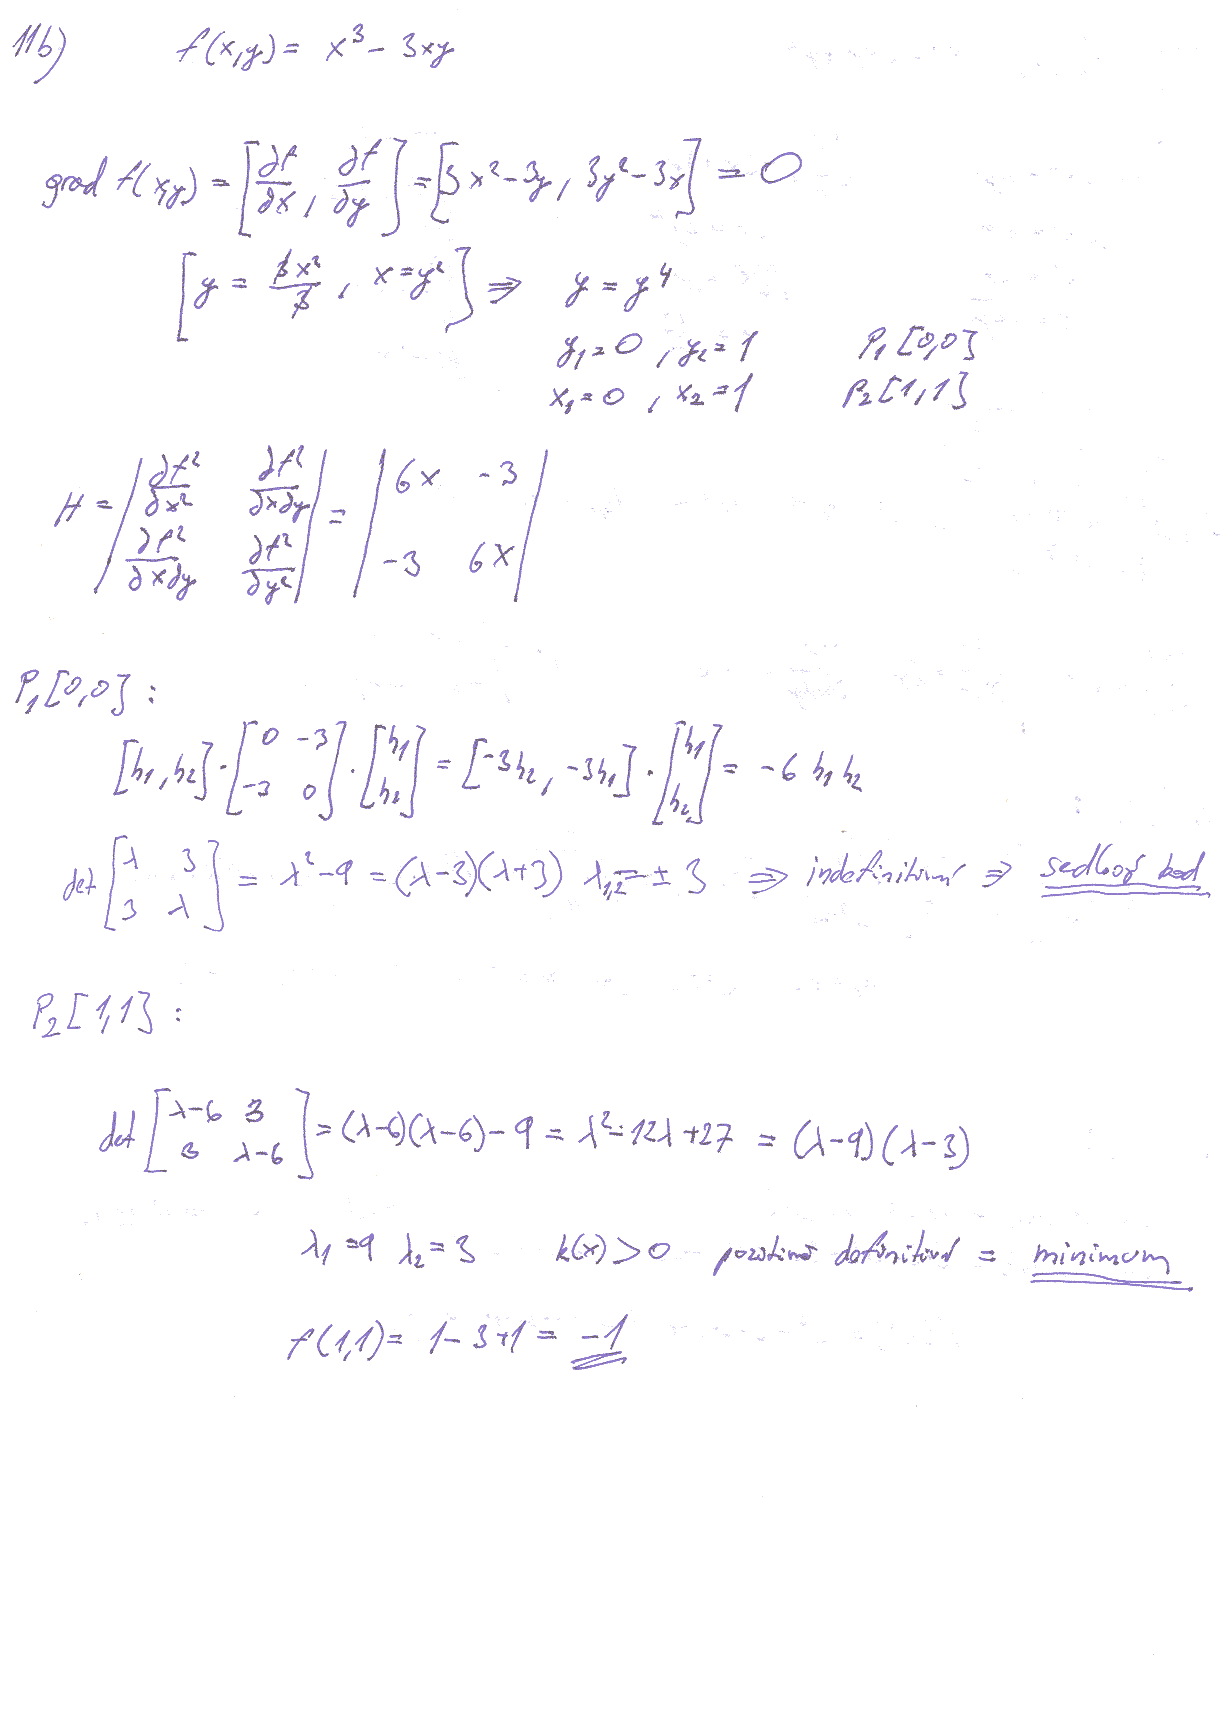 11b) f(x,y) = x³ - 3xy
grad f(x,y) = [∂f/∂x, ∂f/∂y] = [3x² - 3y, 3y² - 3x] = 0
[y = 3x²/3, x = y²] ⇒ y = y⁴
y₁ = 0, y₂ = 1 P₁[0,0]
x₁ = 0, x₂ = 1 P₂[1,1]
H = |∂f²/∂x² ∂f²/∂x∂y| = |6x -3|
|∂f²/∂x∂y ∂f²/∂y²| |-3 6x|
P₁[0,0]:
[h₁, h₂] · [0 -3; -3 0] · [h₁; h₂] = [-3h₂, -3h₁] · [h₁; h₂] = -6 h₁ h₂
det [λ 3; 3 λ] = λ² - 9 = (λ-3)(λ+3) λ₁,₂ = ± 3 ⇒ indefinitní ⇒ sedlový bod
P₂[1,1]:
det [λ-6 3; 3 λ-6] = (λ-6)(λ-6) - 9 = λ² - 12λ + 27 = (λ-9)(λ-3)
λ₁ = 9 λ₂ = 3 k(x) > 0 pozitivně definitivní = minimum
f(1,1) = 1 - 3 + 1 = -1